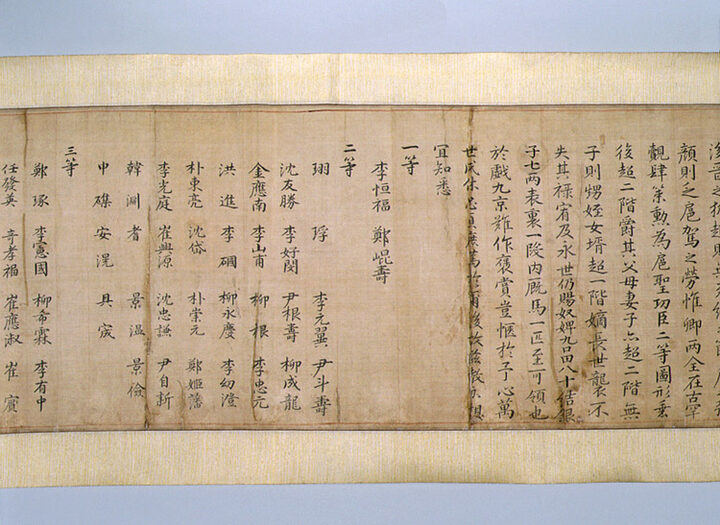 顔則之扈駕之勞惟卿兩全在古罕
覩肆策勲為扈聖功臣二等圖形垂
後超二階爵其父母妻子亦超二階無
子則甥姪女壻超一階嫡長世襲不
失其祿宥及永世仍賜奴婢九口田八十結銀
子七兩表裏一段內厩馬一匹至可領也
於戲九京難作褒賞豈愜於予心萬
世戚休忠貞庶篤於爾後故茲教示想
宜知悉
一等
李恒福 鄭崐壽
二等
珝 琈 李元翼 尹斗壽
沈友勝 李好閔 尹根壽 柳成龍
金應南 李山甫 柳根 李忠元
洪進 李𥕏 柳永慶 李幼澄
朴東亮 沈岱 朴崇元 鄭姬藩
李光庭 崔興源 沈忠謙 尹自新
韓淵 者 景溫 景儉
申磼 安滉 具宬
三等
鄭琢 李憲國 柳希霖 李有中
任發英 奇孝福 崔應淑 崔賓